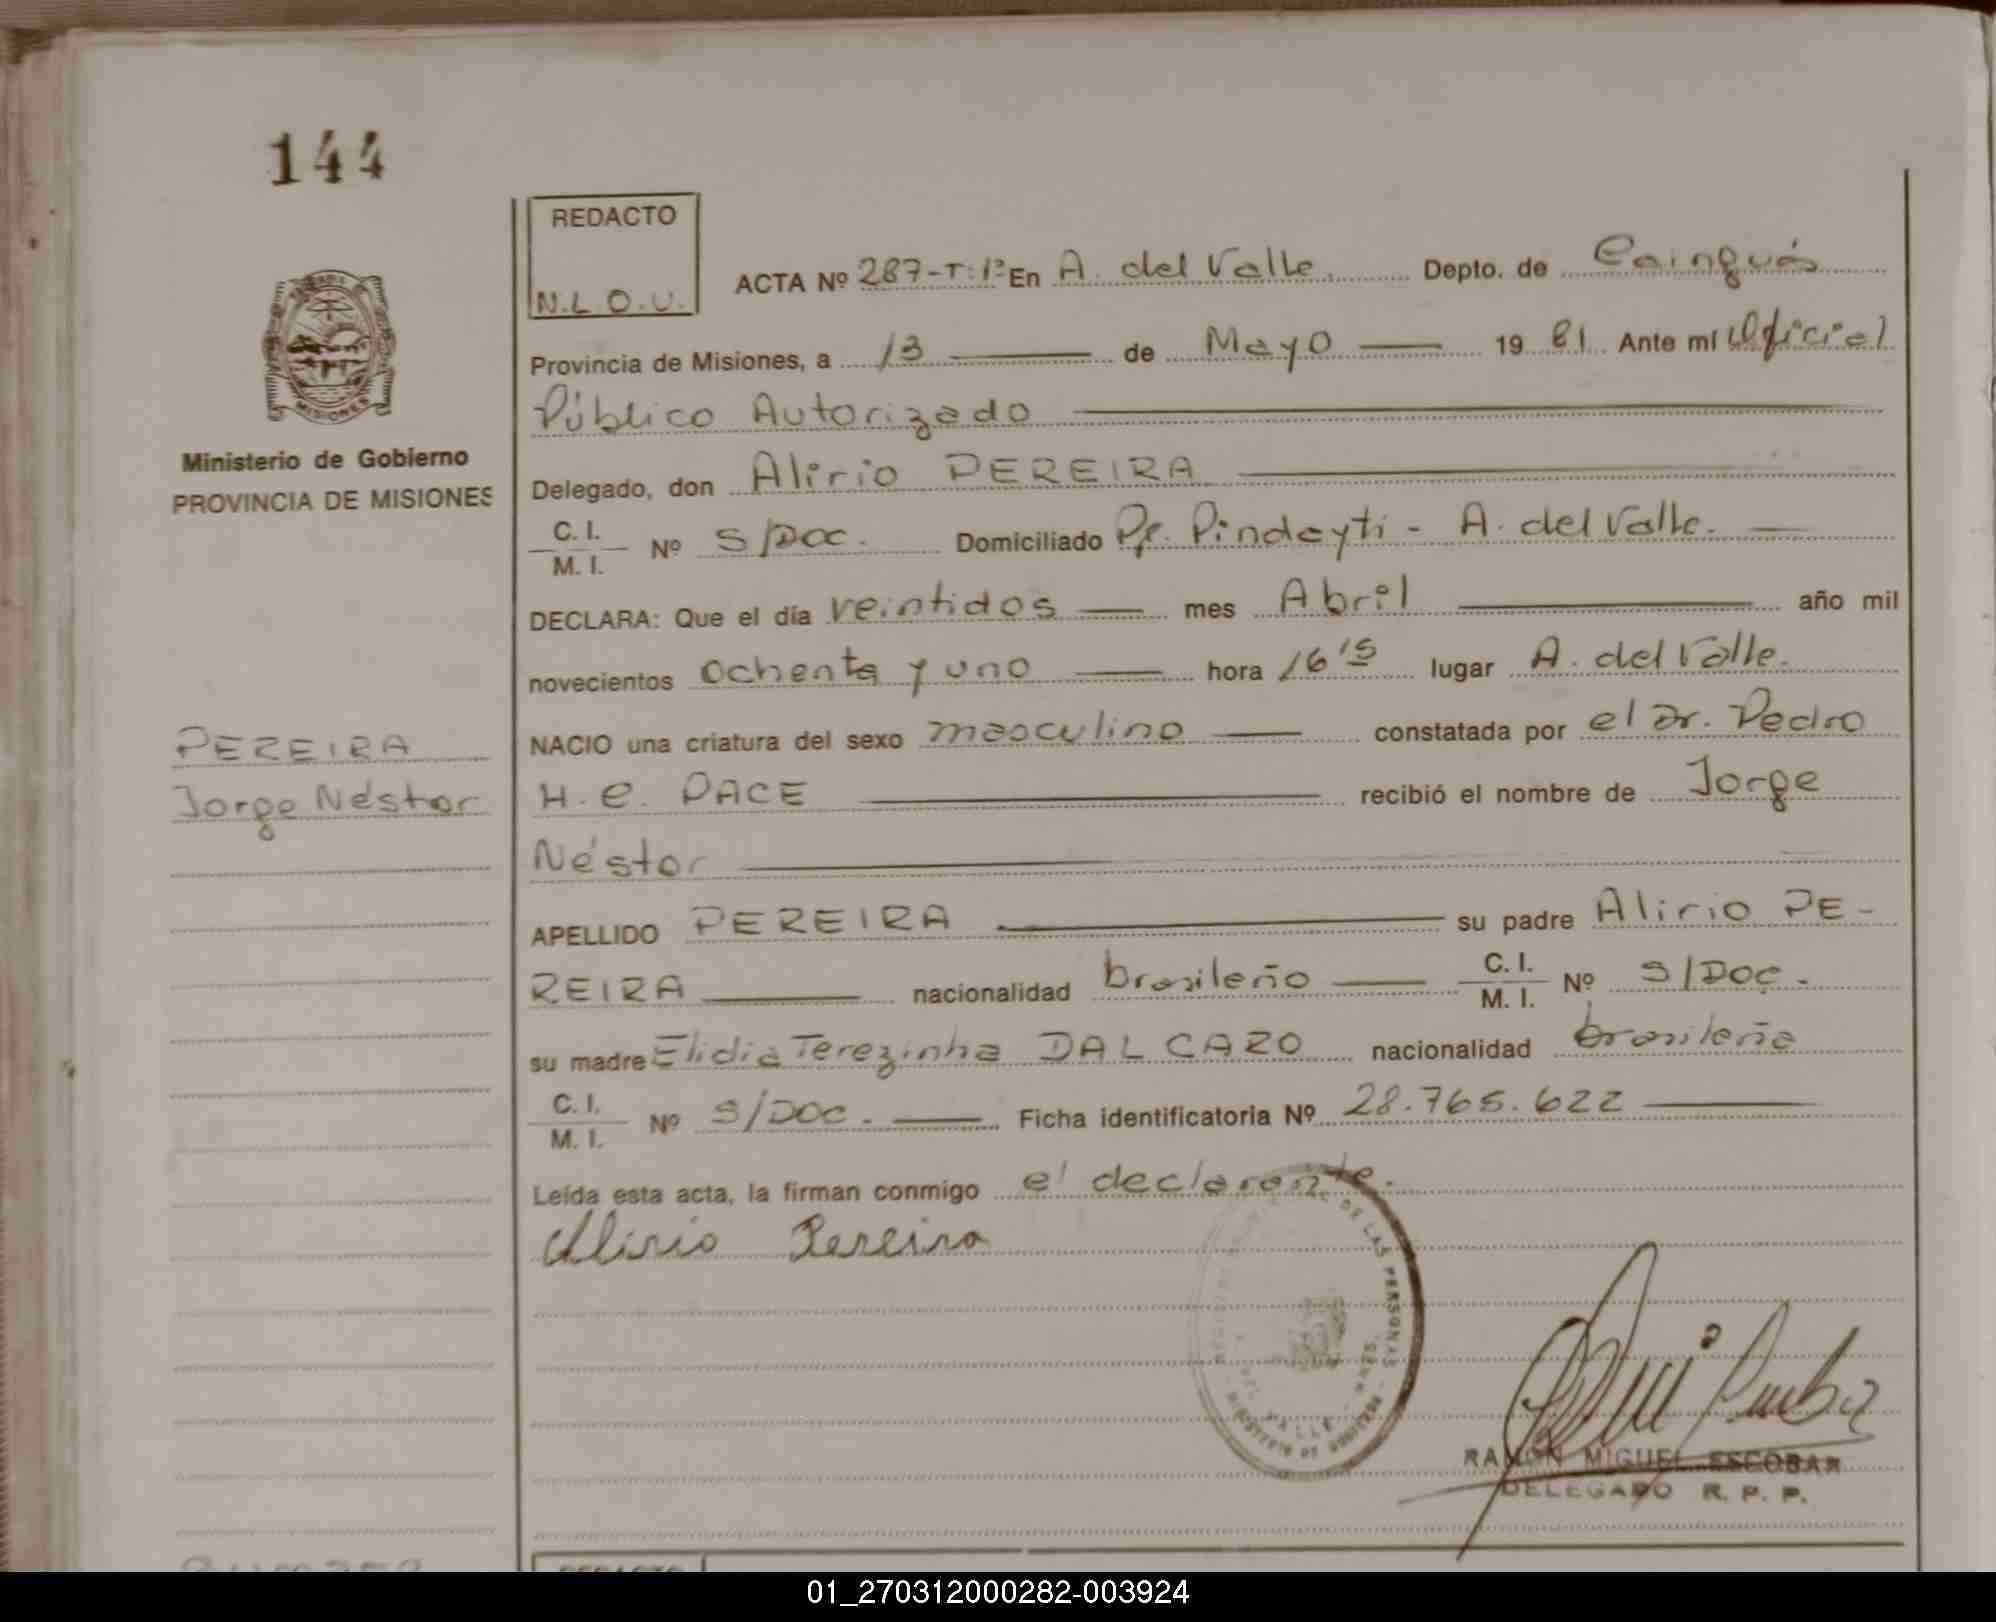 144
REDACTO
N.L.O.U.
ACTA Nº 287-T:1º En A. del Valle. Depto. de Cainguás
Provincia de Misiones, a 13 de Mayo 1981. Ante mí Oficial
Público Autorizado
MISIONES
Ministerio de Gobierno
PROVINCIA DE MISIONES
Delegado, don Alirio PEREIRA
C. I.
M. I. Nº S/DOC. Domiciliado Pje. Pindayti - A. del Valle.
DECLARA: Que el día veintidos mes Abril año mil
novecientos ochenta y uno hora 16'15 lugar A. del Valle.
PEREIRA
Jorge Néstor
NACIO una criatura del sexo masculino constatada por el Dr. Pedro
H. C. PACE recibió el nombre de Jorge
Néstor
APELLIDO PEREIRA su padre Alirio PE-
REIRA nacionalidad brasileño C. I.
M. I. Nº S/DOC.
su madre Elidia Terezinha DAL CAZO nacionalidad brasileña
C. I.
M. I. Nº S/DOC. Ficha identificatoria Nº 28.765.622
Leída esta acta, la firman conmigo el declarante.
Alirio Pereira
DE LAS PERSONAS
MINISTERIO DE GOBIERNO
VALLE
RAMON MIGUEL ESCOBAR
DELEGADO R. P. P.
REDACTO
01_270312000282-003924